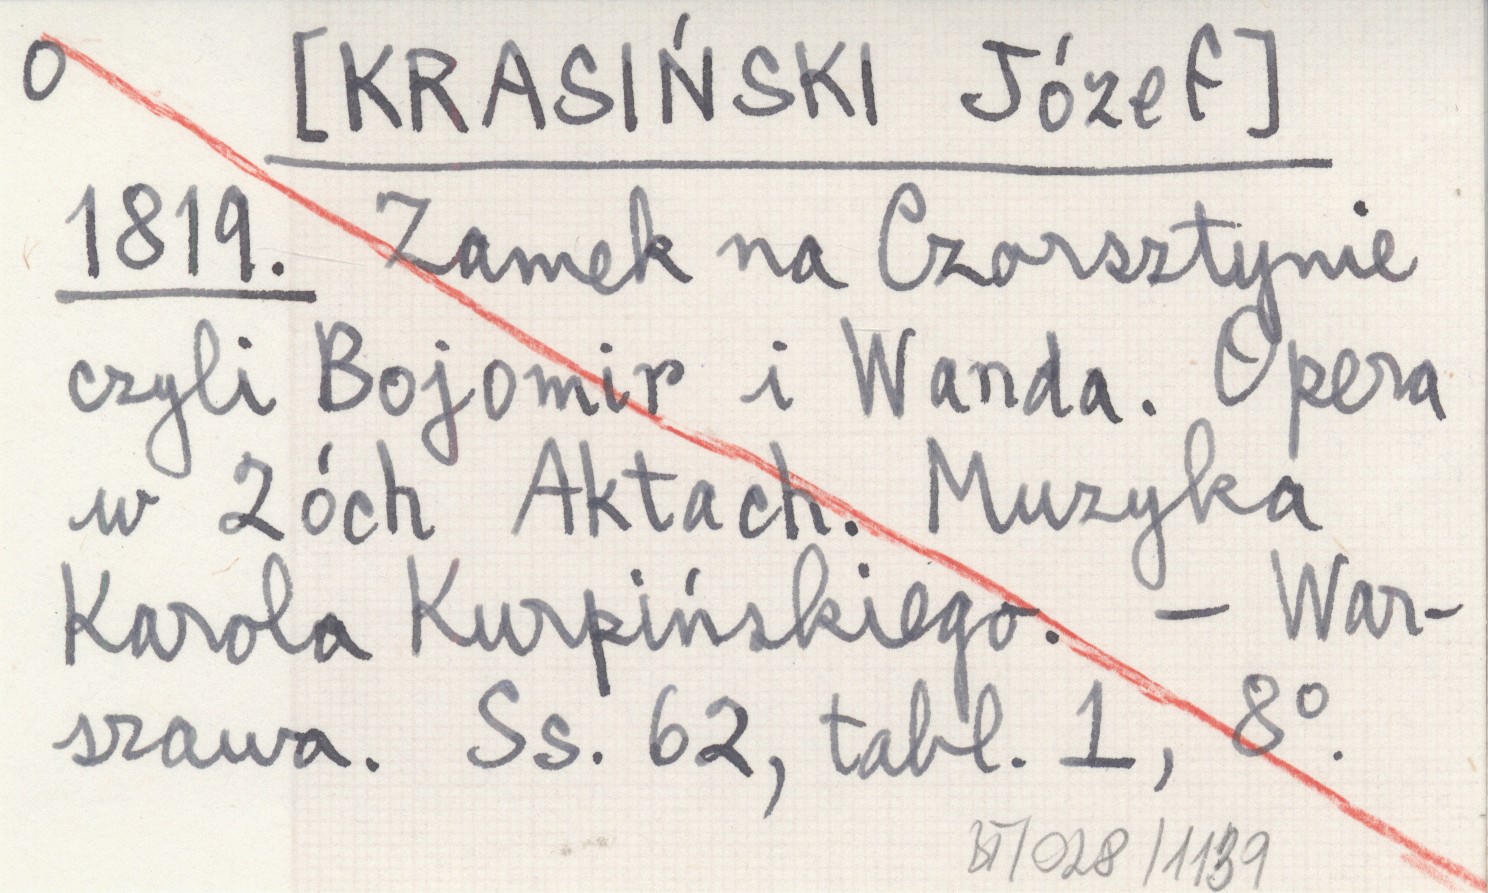 O [KRASIŃSKI Józef]
1819. Zamek na Czorsztynie
czyli Bojomir i Wanda. Opera
w 2óch Aktach. Muzyka
Karola Kurpińskiego. – War-
szawa. Ss. 62, tabl. 1, 8º.
/028/1139